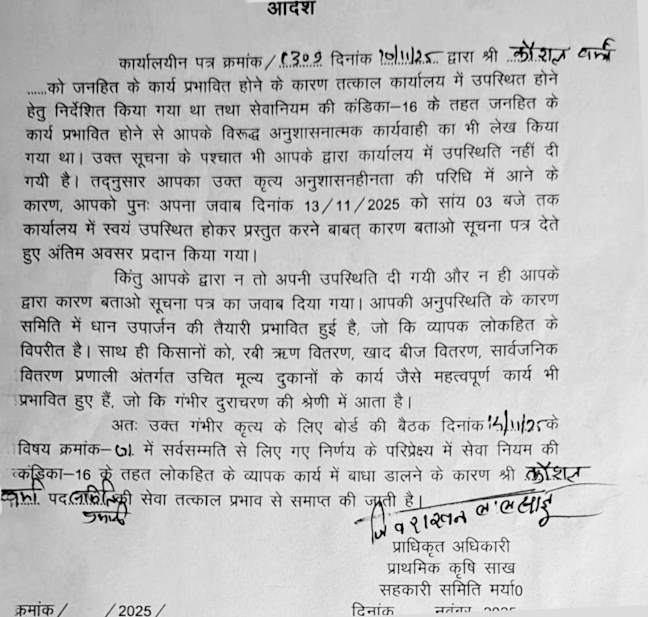 आदेश
कार्यालयीन पत्र क्रमांक/ 1309 दिनांक 10/11/25 द्वारा श्री कौशल वर्मा
......को जनहित के कार्य प्रभावित होने के कारण तत्काल कार्यालय में उपस्थित होने
हेतु निर्देशित किया गया था तथा सेवानियम की कंडिका-16 के तहत जनहित के
कार्य प्रभावित होने से आपके विरूद्ध अनुशासनात्मक कार्यवाही का भी लेख किया
गया था। उक्त सूचना के पश्चात भी आपके द्वारा कार्यालय में उपस्थिति नहीं दी
गयी है। तद्नुसार आपका उक्त कृत्य अनुशासनहीनता की परिधि में आने के
कारण, आपको पुनः अपना जवाब दिनांक 13/11/2025 को सांय 03 बजे तक
कार्यालय में स्वयं उपस्थित होकर प्रस्तुत करने बाबत् कारण बताओ सूचना पत्र देते
हुए अंतिम अवसर प्रदान किया गया।
किंतु आपके द्वारा न तो अपनी उपस्थिति दी गयी और न ही आपके
द्वारा कारण बताओ सूचना पत्र का जवाब दिया गया। आपकी अनुपस्थिति के कारण
समिति में धान उपार्जन की तैयारी प्रभावित हुई है, जो कि व्यापक लोकहित के
विपरीत है। साथ ही किसानों को, रबी ऋण वितरण, खाद बीज वितरण, सार्वजनिक
वितरण प्रणाली अंतर्गत उचित मूल्य दुकानों के कार्य जैसे महत्वपूर्ण कार्य भी
प्रभावित हुए हैं, जो कि गंभीर दुराचरण की श्रेणी में आता है।
अतः उक्त गंभीर कृत्य के लिए बोर्ड की बैठक दिनांक /11/25 के
विषय क्रमांक-01 में सर्वसम्मति से लिए गए निर्णय के परिप्रेक्ष्य में सेवा नियम की
कंडिका-16 के तहत लोकहित के व्यापक कार्य में बाधा डालने के कारण श्री कौशल
वर्मा पद की सेवा तत्काल प्रभाव से समाप्त की जाती है।
प्राधिकृत अधिकारी
प्राथमिक कृषि साख
सहकारी समिति मर्या0
क्रमांक / /2025/ दिनांक नवंबर 2025